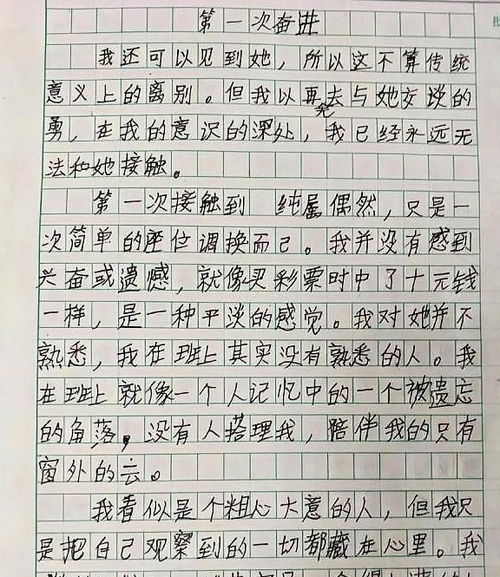 第一次奋进
我还可以见到她，所以这不算传统
意义上的离别。但我以再去与她交谈的
勇，在我的意识的深处，我已经永远无
法和她接触。
第一次接触到 纯属偶然，只是一
次简单的座位调换而已。我并没有感到
兴奋或遗憾，就像买彩票时中了十元钱
一样，是一种平淡的感觉。我对她并不
熟悉，我在班上其实没有熟悉的人。我
在班上就像一个人记忆中的一个被遗忘
的角落，没有人搭理我，陪伴我的只有
窗外的云。
我看似是个粗心大意的人，但我只
是把自己观察到的一切都藏在心里。我